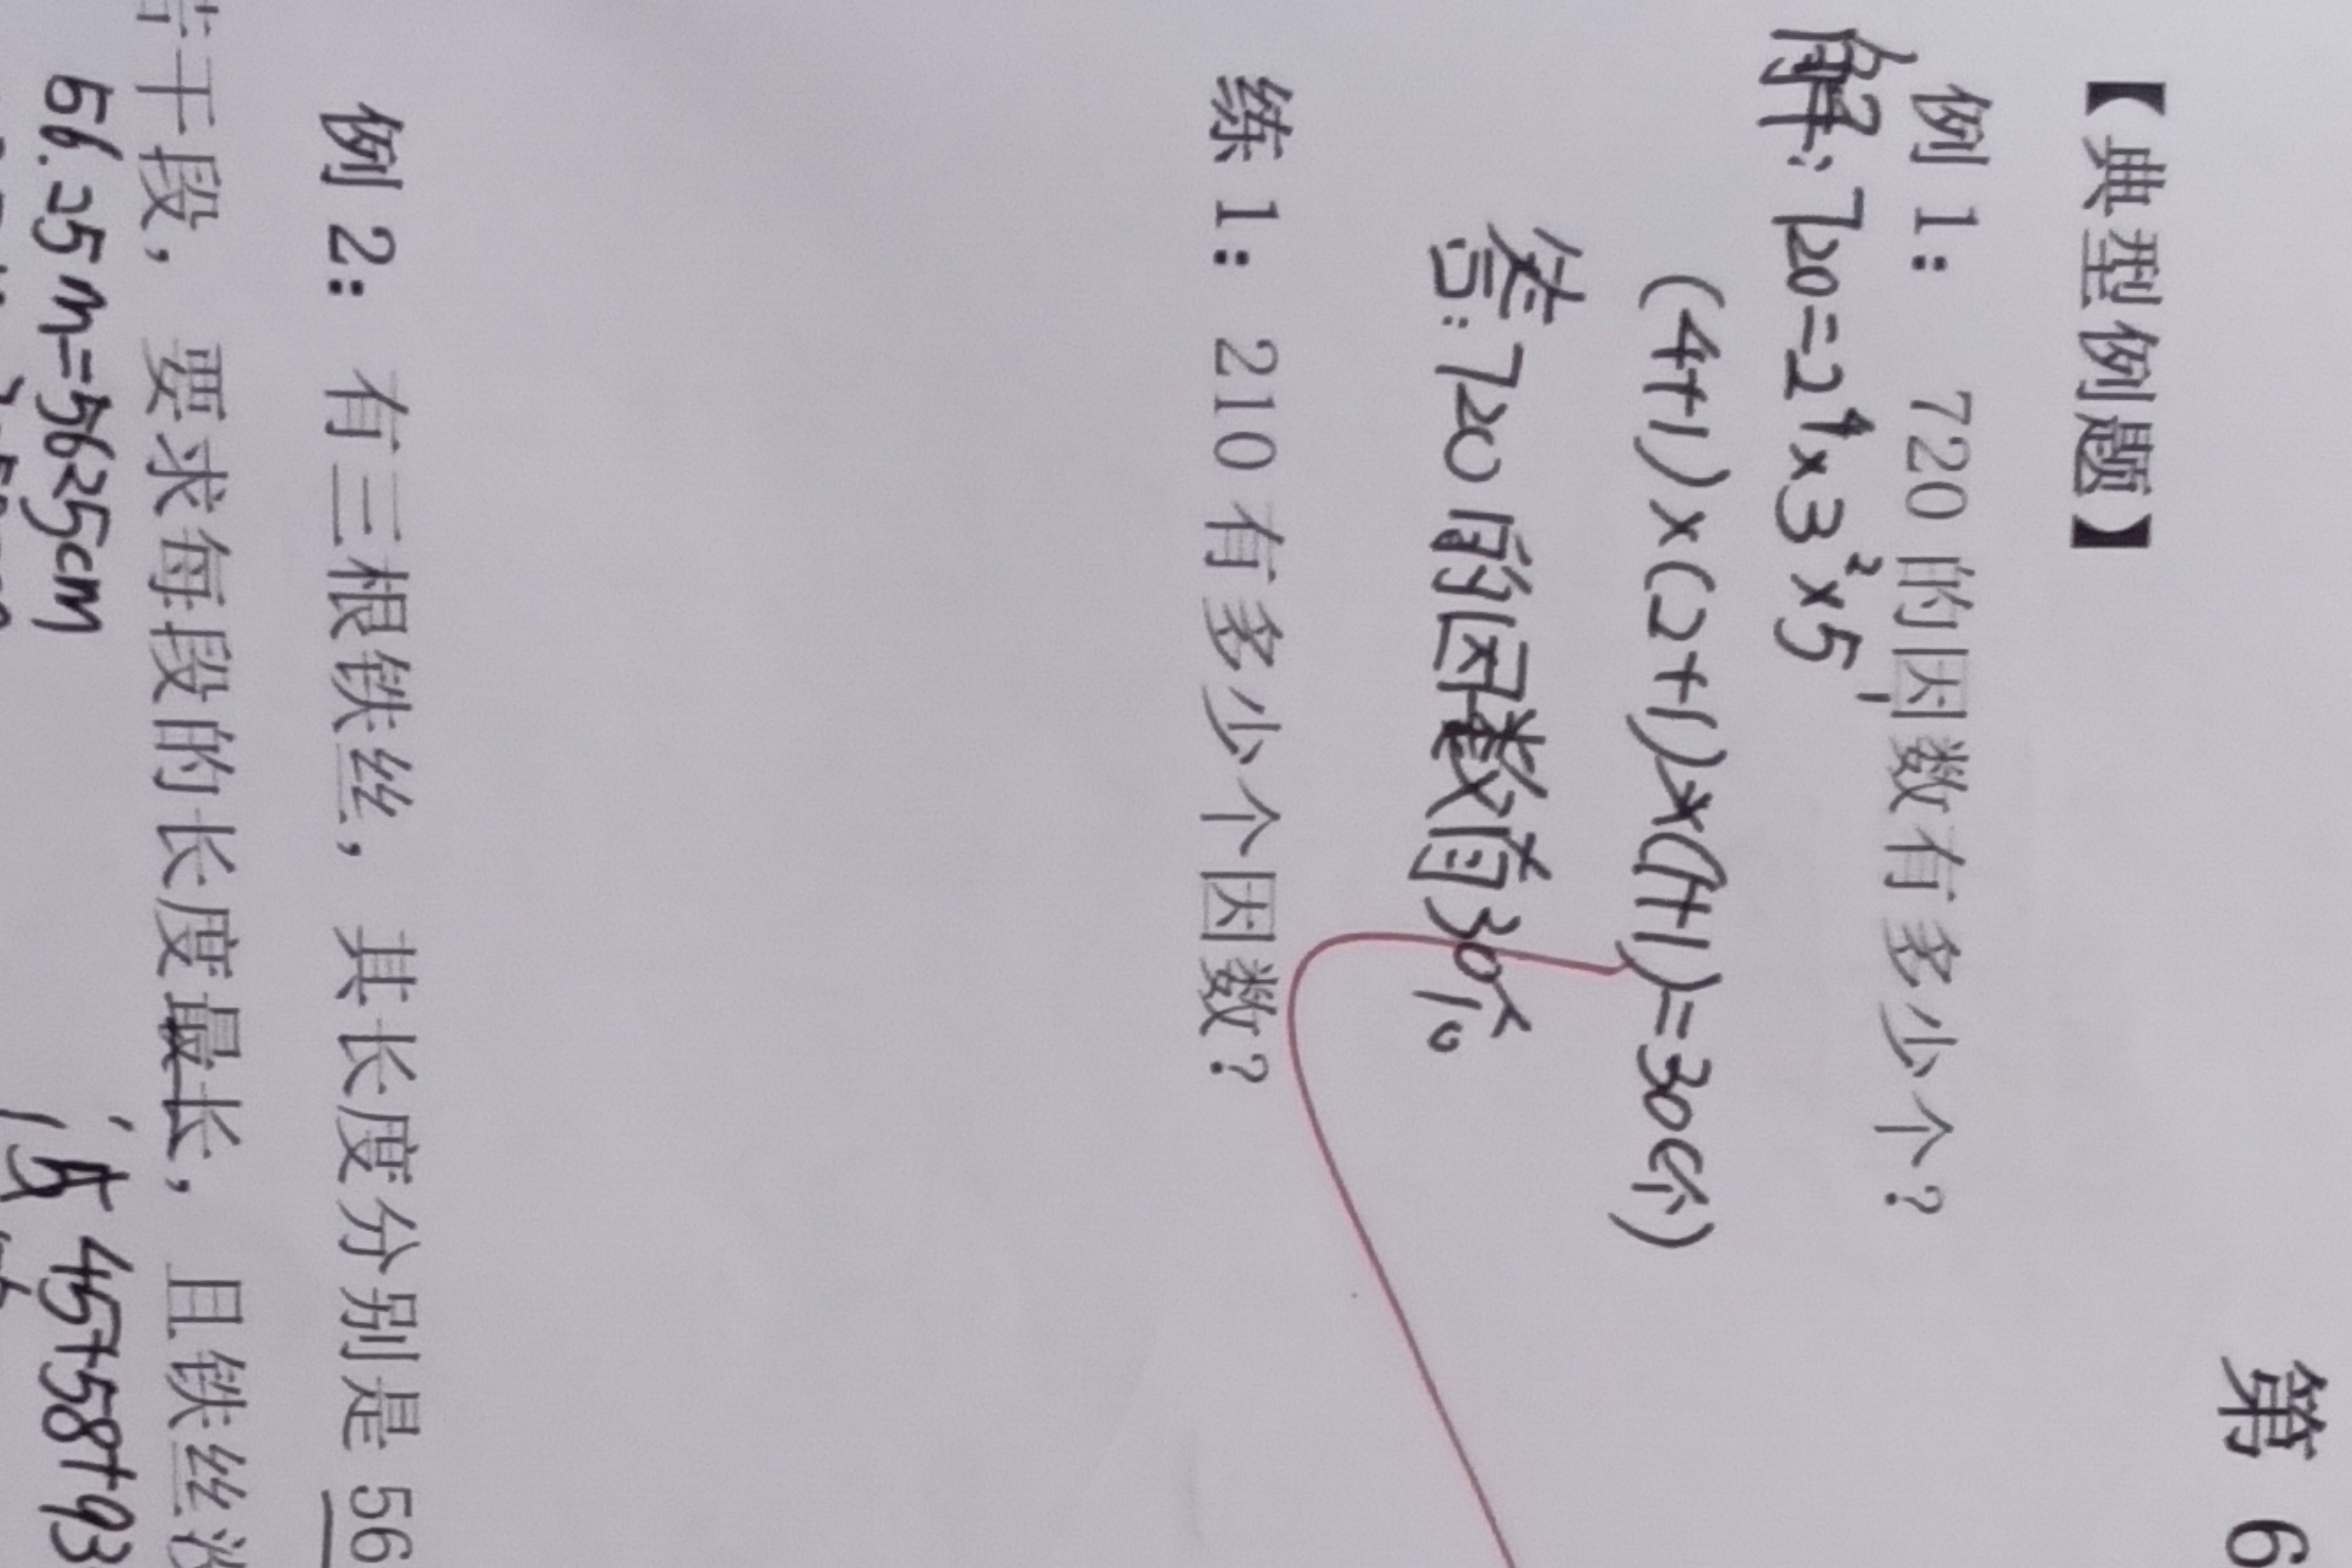 第 6
【典型例题】
例 1： 720 的因数有多少个？
解：720=2⁴×3²×5¹
(4+1)×(2+1)×(1+1)=30(个)
答：720的因数有30个。
练 1： 210 有多少个因数？
例 2： 有三根铁丝，其长度分别是 56
干段，要求每段的长度最长，且铁丝
56.25m=5625cm
45+58+93